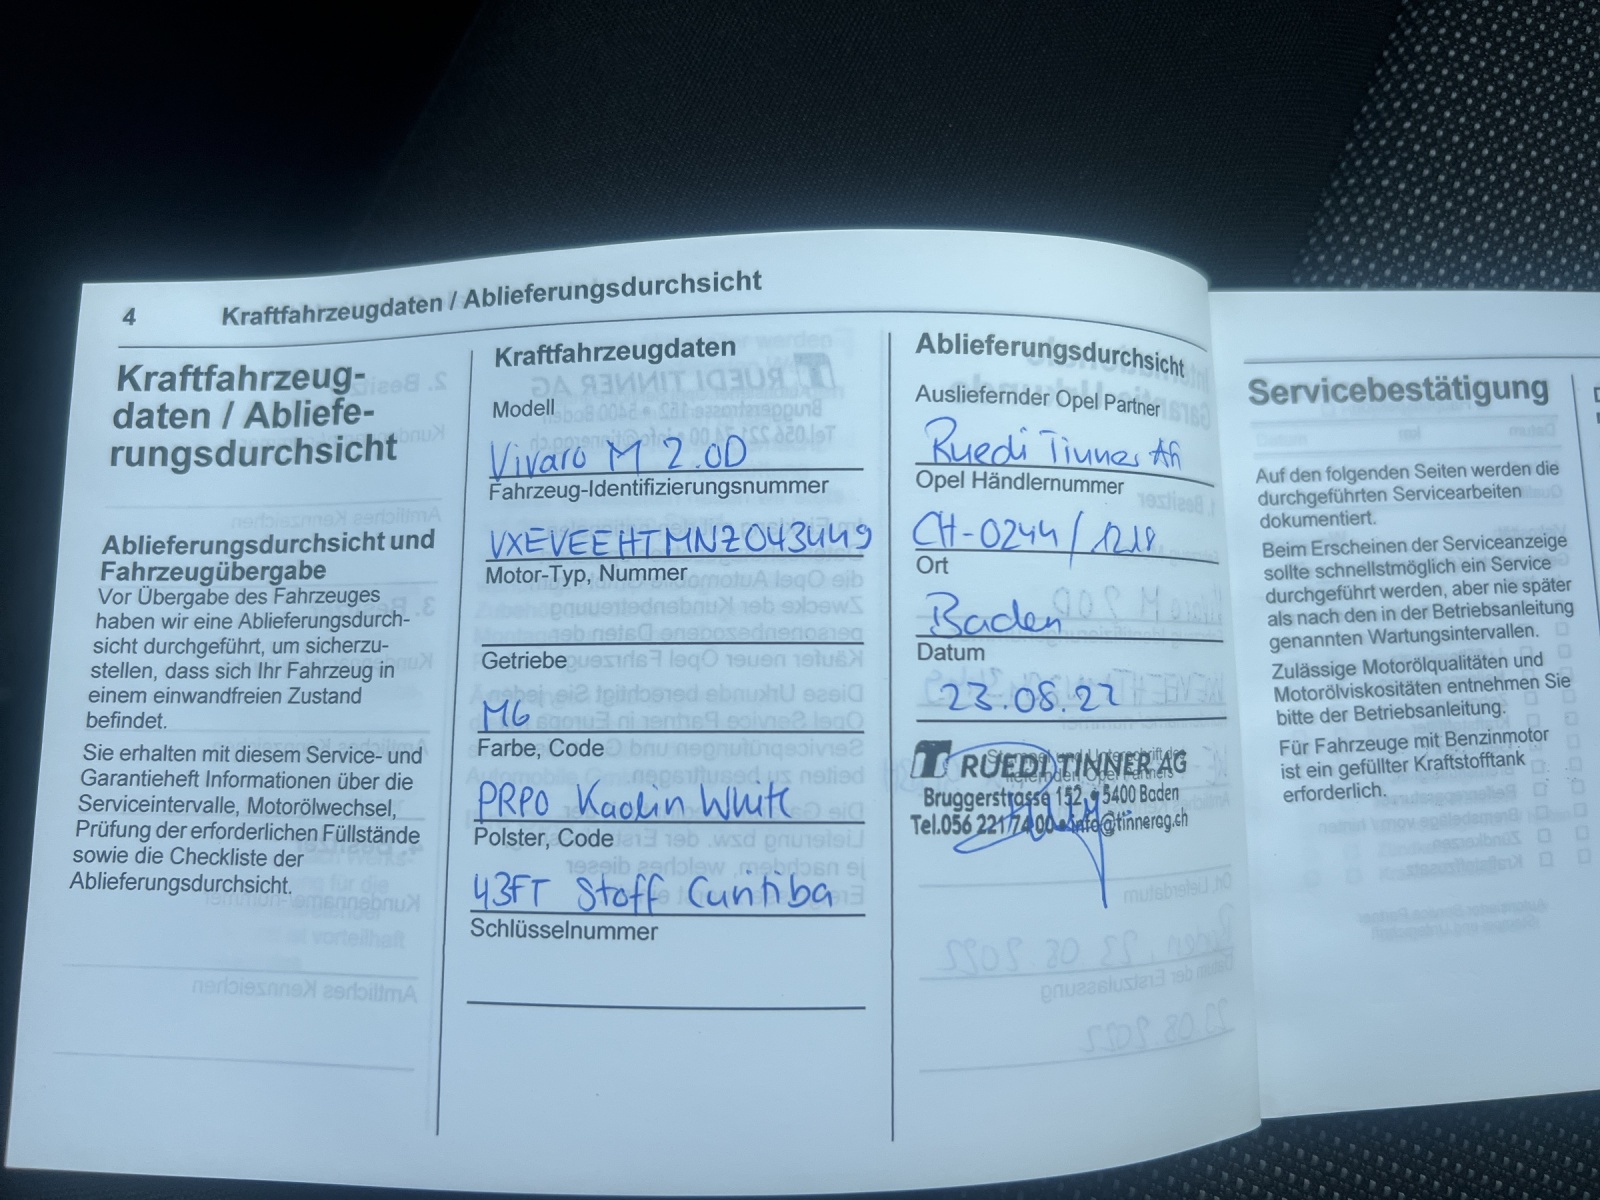 4 Kraftfahrzeugdaten / Ablieferungsdurchsicht
Kraftfahrzeug-
daten / Abliefe-
rungsdurchsicht
Ablieferungsdurchsicht und
Fahrzeugübergabe
Vor Übergabe des Fahrzeuges
haben wir eine Ablieferungsdurch-
sicht durchgeführt, um sicherzu-
stellen, dass sich Ihr Fahrzeug in
einem einwandfreien Zustand
befindet.
Sie erhalten mit diesem Service- und
Garantieheft Informationen über die
Serviceintervalle, Motorölwechsel,
Prüfung der erforderlichen Füllstände
sowie die Checkliste der
Ablieferungsdurchsicht.
Kraftfahrzeugdaten
Modell
Vivaro M 2.0D
Fahrzeug-Identifizierungsnummer
VXEVEEHTMNZ043449
Motor-Typ, Nummer
Getriebe
M6
Farbe, Code
PRP0 Kaolin White
Polster, Code
43FT Stoff Curitiba
Schlüsselnummer
Ablieferungsdurchsicht
Ausliefernder Opel Partner
Ruedi Tinner AG
Opel Händlernummer
CH-0244/1218
Ort
Baden
Datum
23.08.22
Stempel und Unterschrift des
liefernden Opel Partners
RUEDI TINNER AG
Bruggerstrasse 152, 5400 Baden
Tel.056 221 74 00 info@tinnerag.ch
Servicebestätigung
Auf den folgenden Seiten werden die
durchgeführten Servicearbeiten
dokumentiert.
Beim Erscheinen der Serviceanzeige
sollte schnellstmöglich ein Service
durchgeführt werden, aber nie später
als nach den in der Betriebsanleitung
genannten Wartungsintervallen.
Zulässige Motorölqualitäten und
Motorölviskositäten entnehmen Sie
bitte der Betriebsanleitung.
Für Fahrzeuge mit Benzinmotor
ist ein gefüllter Kraftstofftank
erforderlich.